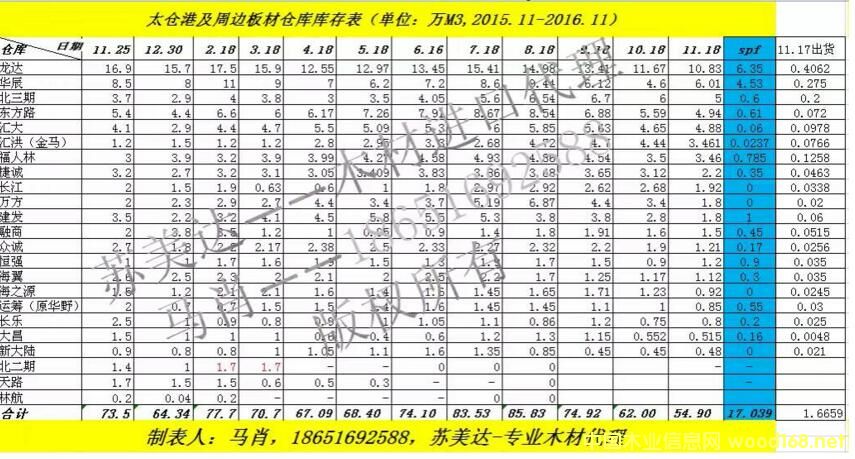 太仓港及周边板材仓库库存表（单位：万M3,2015.11-2016.11）
仓库 日期 11.25 12.30 2.18 3.18 4.18 5.18 6.16 7.18 8.18 9.12 10.18 11.18 spf 11.17出货
龙达 16.9 15.7 17.5 15.9 12.55 12.97 13.45 15.41 14.98 13.41 11.67 10.83 6.35 0.4062
华辰 8.5 8 11 9 7 6.2 7.2 8.6 9.44 6.12 4.6 6.01 4.53 0.275
北三期 3.7 2.9 4 3.8 3 3.5 4.05 5.6 5.54 6.7 6 5 0.6 0.2
东方路 5.4 4.4 6.6 6 6.17 7.26 7.91 8.67 8.54 6.88 5.59 4.94 0.61 0.072
汇大 4.1 2.9 4.4 4.7 5.5 5.09 5.3 6 5.85 5.63 4.65 4.88 0.06 0.0978
汇洪（金马） 1.2 1.5 1.2 1.2 2.8 2.95 3.3 2.68 4.72 4.7 4.44 3.461 0.0237 0.0766
福人林 3 3.9 3.2 3.9 3.99 4.27 4.58 4.93 4.86 4.54 3.5 3.46 0.785 0.1258
捷诚 3.2 2.7 3.2 3.1 3.05 3.409 3.83 3.86 3.68 3.65 3.12 2.2 0.35 0.0463
长江 2 1.5 1.9 0.63 0.6 1 1.8 2.97 2.92 2.62 2.68 1.92 0 0.0338
万方 2 2.3 2.9 2.7 4.4 3.4 3.7 5.19 6.87 4.4 3.4 1.8 0 0.02
建发 3.5 2.2 3.2 4.1 4.5 5.8 5.5 5.3 3.8 3.8 2.8 1.8 1 0.06
融商 2 3.8 3.5 1.2 1 0.95 0.9 1.4 1.8 1.91 1.6 1.5 0.45 0.0515
众诚 2.7 1.8 2.2 2.17 2.38 2.5 2.33 2.27 2.32 2.2 1.9 1.21 0.17 0.0256
恒强 1 1 1.7 1.6 1.3 1.5 1.3 1.1 1.7 1.5 1.2 0.9 0.9 0.035
海翼 2.6 2.5 2.3 2 2.1 2 2.5 2.2 1.7 1.25 1.17 1.12 0.3 0.035
海之源 1.5 1.2 2.1 2.1 1.6 1.4 1.5 1.45 1.65 1.71 1.23 0.92 0 0.0245
运筹（原华野） 2 0.1 0.7 1.5 1.5 1.4 1.6 1.45 1.45 1.1 1 0.85 0.55 0.03
长乐 2.5 1 0.9 0.8 0.9 1 1.05 1.1 0.86 1.2 0.75 0.8 0.2 0.025
大昌 1.5 1 1 1 0.6 0.4 0.6 1.2 1.3 1.15 0.552 0.515 0.16 0.0048
新大陆 0.9 0.8 0.8 1 1.05 1.1 1.6 1.35 0.85 0.45 0.45 0.48 0 0.021
北二期 1.4 1 1.7 1.7 - - 0 0 - - -
天路 1.7 1.5 1.5 0.6 0.5 0.3 - - 0 - - -
林航 0.2 0.04 0.2 - - - - 0 0 - - -
合计 73.5 64.34 77.7 70.7 67.09 68.40 74.10 83.53 85.83 74.92 62.00 54.90 17.039 1.6659
制表人：马肖，18651692588，苏美达-专业木材代理
苏美达——木材进口代理
马肖——18651692588
版权所有
中国木业信息网 wood168.net